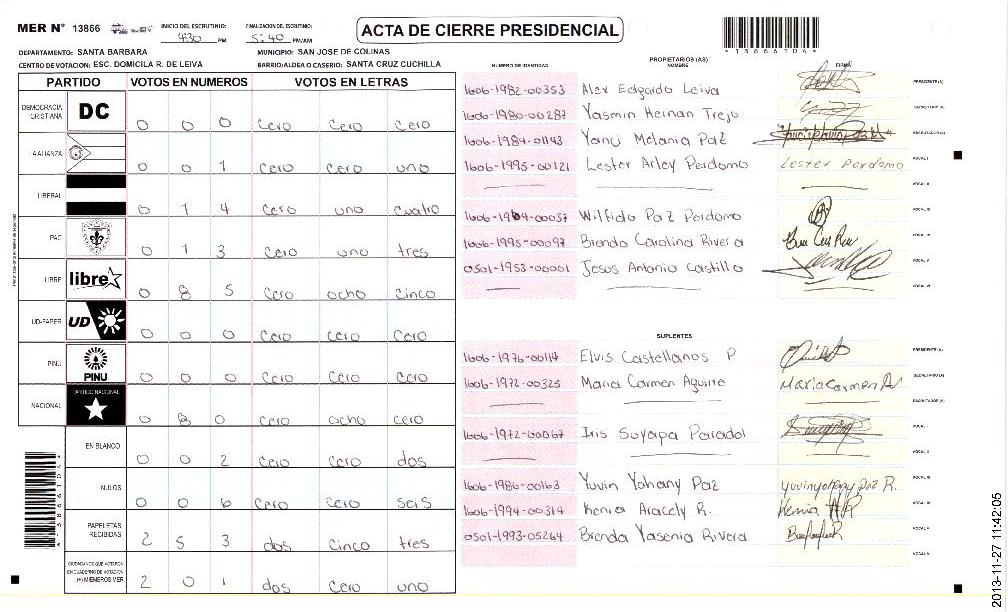 MER N° 13866
INICIO DEL ESCRUTINIO:
4:30 PM
FINALIZACION DEL ESCRUTINIO:
5:40 PM/AM
ACTA DE CIERRE PRESIDENCIAL
DEPARTAMENTO: SANTA BARBARA
MUNICIPIO: SAN JOSE DE COLINAS
CENTRO DE VOTACION: ESC. DOMICILA R. DE LEIVA
BARRIO/ALDEA O CASERIO: SANTA CRUZ CUCHILLA
*13866104*
PARTIDO VOTOS EN NUMEROS VOTOS EN LETRAS
DEMOCRACIA CRISTIANA DC 0 0 0 cero cero cero
LA ALIANZA 0 0 1 cero cero uno
LIBERAL 0 1 4 cero uno cuatro
PAC 0 1 3 cero uno tres
LIBRE libre 0 8 5 cero ocho cinco
UD-FAPER UD 0 0 0 cero cero cero
PINU PINU 0 0 0 cero cero cero
NACIONAL PARTIDO NACIONAL 0 8 0 cero ocho cero
EN BLANCO 0 0 2 cero cero dos
NULOS 0 0 6 cero cero seis
PAPELETAS RECIBIDAS 2 5 3 dos cinco tres
CIUDADANOS QUE VOTARON EN CUADERNO DE VOTACION (+) MIEMBROS MER 2 0 1 dos cero uno
*13866104*
PROPIETARIOS (AS)
NUMERO DE IDENTIDAD NOMBRE FIRMA
1606-1982-00353 Alex Edgardo Leiva PRESIDENTE(A)
1606-1980-00287 Yasmin Hernan Trejo SECRETARIO (A)
1606-1984-01143 Yanu Melania Paz ESCRUTADOR (A)
1606-1995-00121 Lester Arley Perdomo Lester Perdomo VOCAL I
VOCAL II
1606-1964-00037 Wilfido Paz Perdomo VOCAL III
1606-1995-00097 Brenda Carolina Rivera VOCAL IV
0501-1953-00001 Jesus Antonio Castillo VOCAL V
VOCAL VI
SUPLENTES
1606-1976-00114 Elvis Castellanos P PRESIDENTE (A)
1606-1972-00325 Maria Carmen Aguirre Maria Carmen A SECRETARIO (A)
ESCRUTADOR (A)
1606-1972-00067 Iris Suyapa Paradol VOCAL I
VOCAL II
1606-1986-00163 Yuvin Yohany Paz yuvinyohany Paz R. VOCAL III
1606-1994-00314 Kenia Aracely R. Kenia VOCAL IV
0501-1993-05264 Brenda Yasenia Rivera VOCAL V
VOCAL VI
2013-11-27 11:42:05